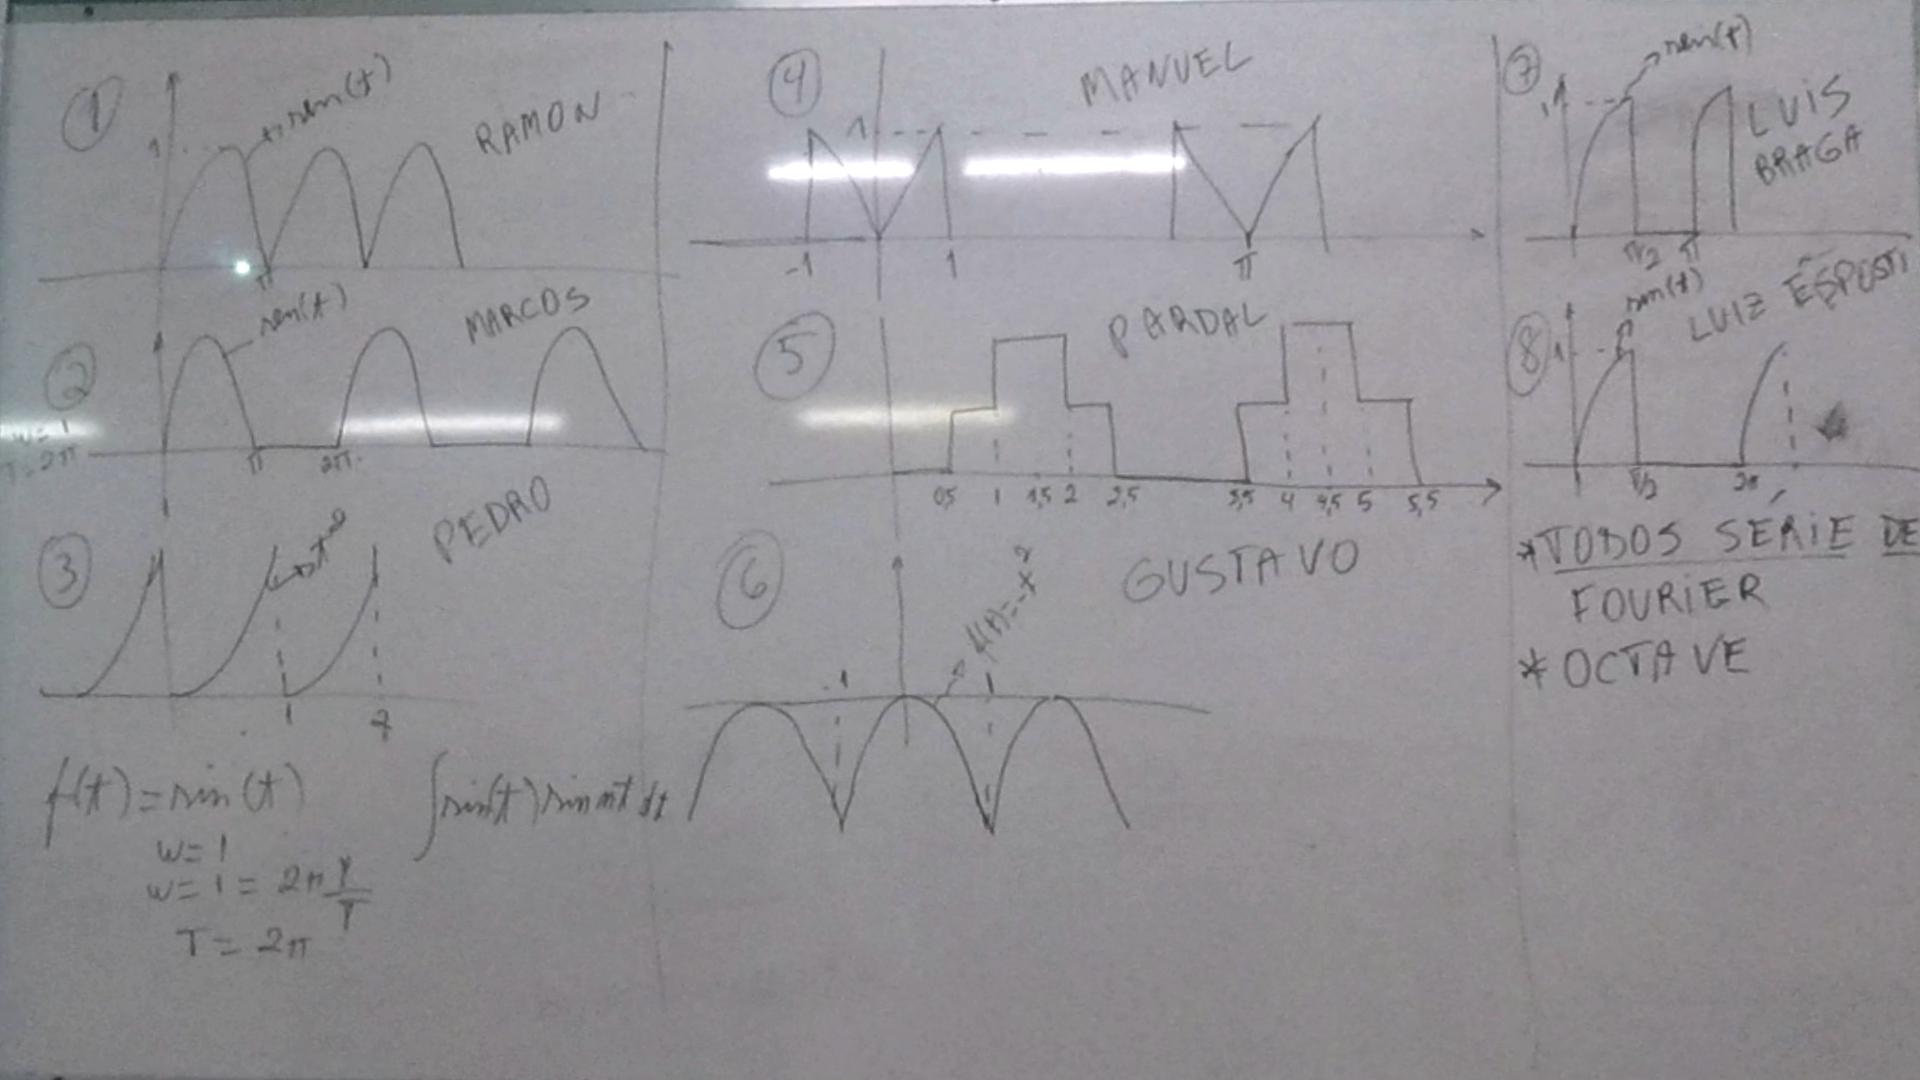 1
sen(t)
RAMON
1
π
2
sen(t)
MARCOS
w=1
T=2π
π
2π
3
PEDRO
1
2
f(t)=sin(t)
w=1
w=1=2π 1/T
T=2π
∫sin(t)sin nt dt
4
MANUEL
1
-1
1
π
5
PARDAL
0,5
1
1,5
2
2,5
3,5
4
4,5
5
5,5
6
GUSTAVO
f(t)=-t²
-1
1
7
sen(t)
1
LUIS
BRAGA
π/2
π
8
sen(t)
LUIZ ESPOSTI
1
π/2
2π
*TODOS SÉRIE DE
FOURIER
*OCTAVE